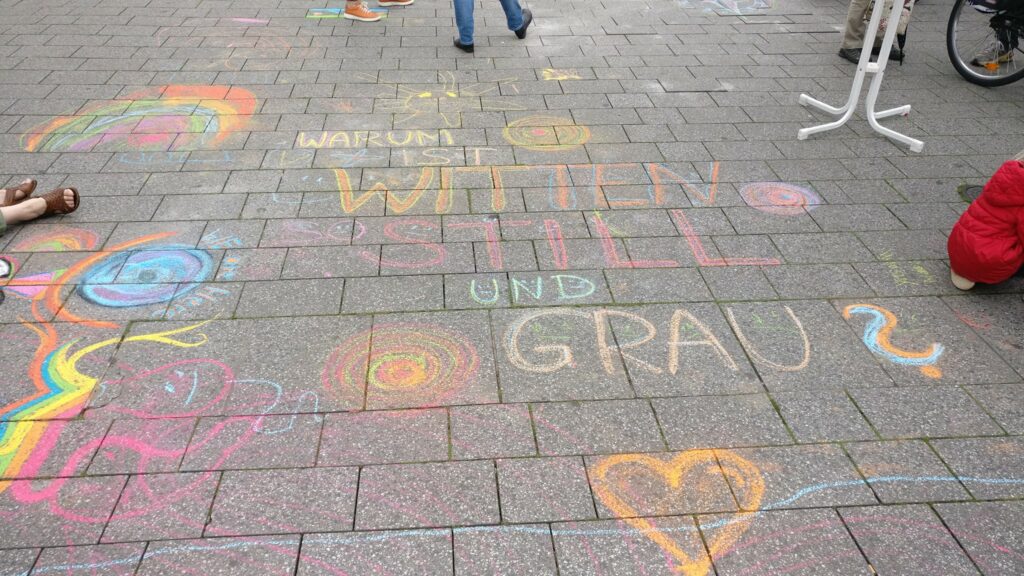 WARUM
IST
WITTEN
STILL
UND
GRAU?